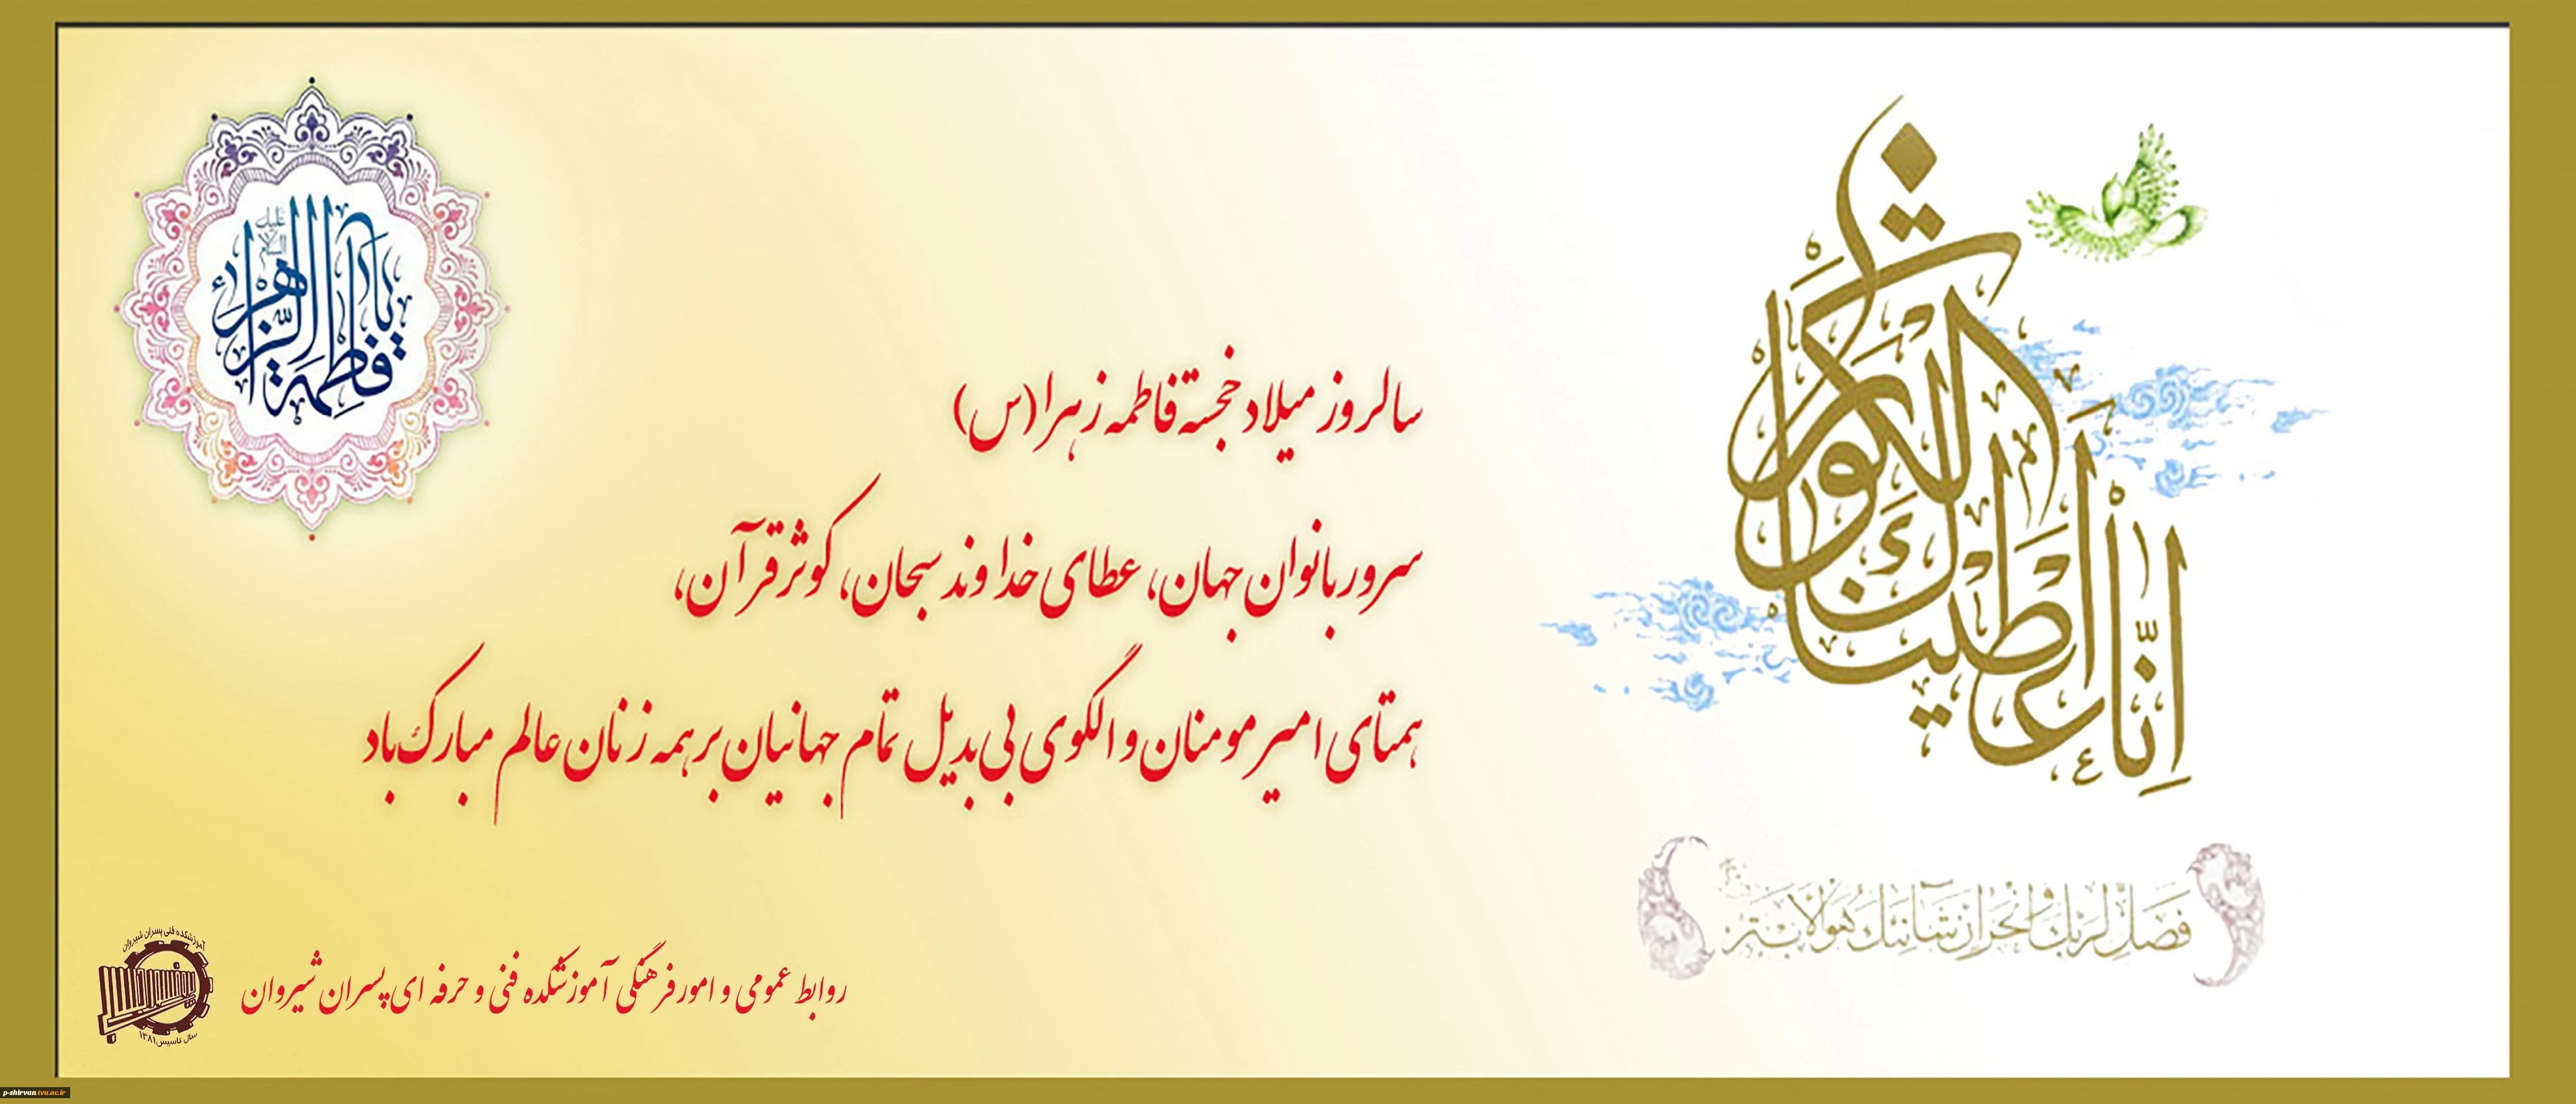 إِنَّا أَعْطَيْنَاكَ الْكَوْثَرَ
فَصَلِّ لِرَبِّكَ وَانْحَرْ إِنَّ شَانِئَكَ هُوَ الْأَبْتَرُ
يا فاطمة الزهراء
عليها السلام
سالروز میلاد خجسته فاطمه زهرا (س)
سرور بانوان جهان، عطای خداوند سبحان، کوثر قرآن،
همتای امیر مومنان و الگوی بی بدیل تمام جهانیان بر همه زنان عالم مبارک باد
روابط عمومی و امور فرهنگی آموزشکده فنی و حرفه ای پسران شیروان
آموزشکده فنی پسران شیروان
سال تاسیس ۱۳۸۱
p-shirvan.tvu.ac.ir